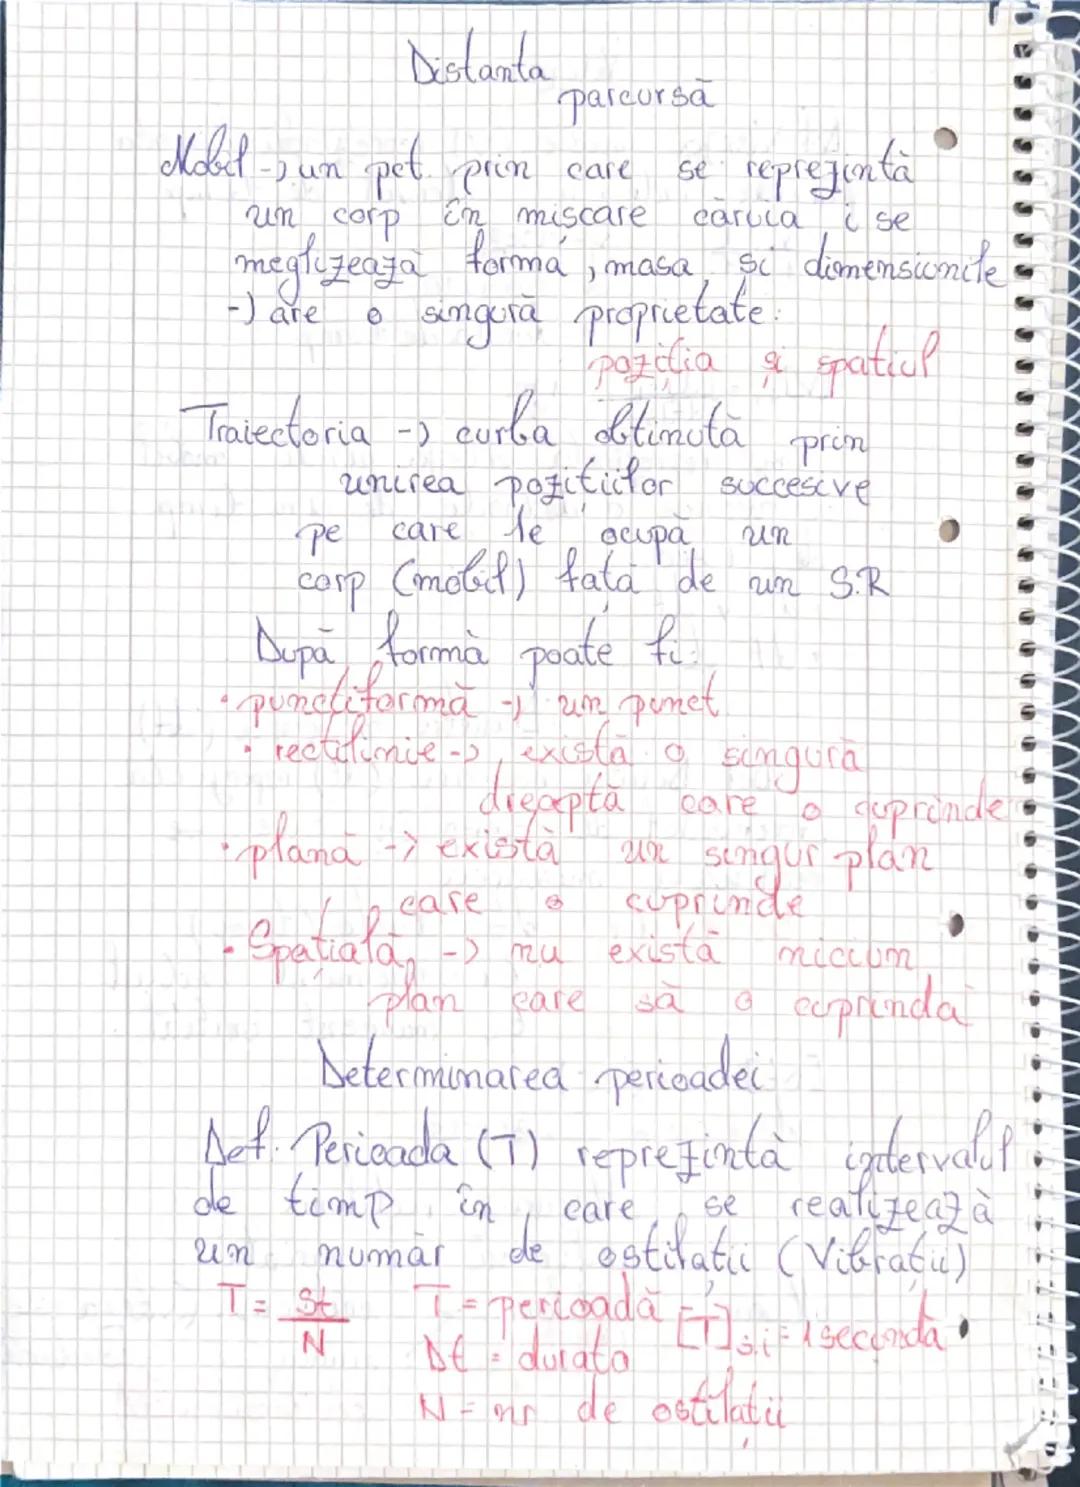 Distanta
parcursă
Mobil -> un pct. prin care se reprezintă
un corp în mișcare căruia i se
neglizează forma, masa și dimensiunile
-) are o singură proprietate:
poziția și spațiul
Traiectoria -) curba obtinută prin
unirea pozițiilor succesive
pe care le ocupă un
corp (mobil) față de un S.R
După formă poate fi:
• punctiformă -) un punct
• rectilinie -> există o singură
dreaptă care o cuprinde
• plană -> există un singur plan
care o cuprinde
• Spațială, -> nu există niciun
plan care să o cuprindă
Determinarea perioadei
Def. Perioada (T) reprezintă intervalul
de timp în care se realizează
un număr de ostilații (Vibrații)
T = St/N T = perioadă [T]s.i = 1 secundă
Δt = durata
N = nr de ostilații